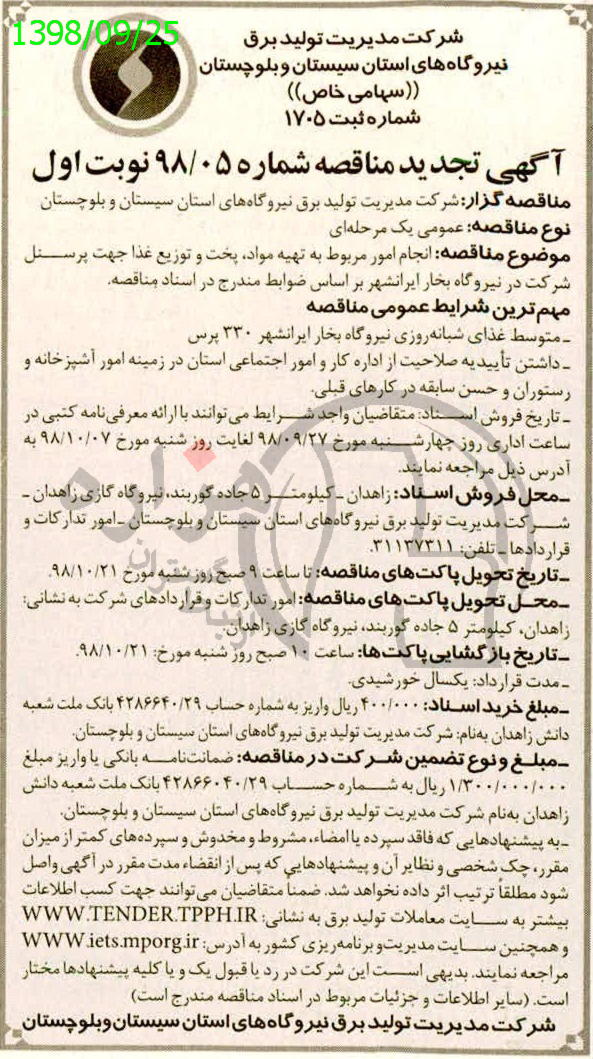 1398/09/25
شرکت مدیریت تولید برق
نیروگاه‌های استان سیستان و بلوچستان
((سهامی خاص))
شماره ثبت ۱۷۰۵
آگهی تجدید مناقصه شماره ۹۸/۰۵ نوبت اول
مناقصه‌گزار: شرکت مدیریت تولید برق نیروگاه‌های استان سیستان و بلوچستان
نوع مناقصه: عمومی یک مرحله‌ای
موضوع مناقصه: انجام امور مربوط به تهیه مواد، پخت و توزیع غذا جهت پرسنل
شرکت در نیروگاه بخار ایرانشهر بر اساس ضوابط مندرج در اسناد مناقصه.
مهم‌ترین شرایط عمومی مناقصه
ـ متوسط غذای شبانه‌روزی نیروگاه بخار ایرانشهر ۳۳۰ پرس
ـ داشتن تأییدیه صلاحیت از اداره کار و امور اجتماعی استان در زمینه امور آشپزخانه و
رستوران و حسن سابقه در کارهای قبلی.
ـ تاریخ فروش اسناد: متقاضیان واجد شرایط می‌توانند با ارائه معرفی‌نامه کتبی در
ساعت اداری روز چهارشنبه مورخ ۹۸/۰۹/۲۷ لغایت روز شنبه مورخ ۹۸/۱۰/۰۷ به
آدرس ذیل مراجعه نمایند.
ـ محل فروش اسناد: زاهدان ـ کیلومتر ۵ جاده گوربند، نیروگاه گازی زاهدان ـ
شرکت مدیریت تولید برق نیروگاه‌های استان سیستان و بلوچستان ـ امور تدارکات و
قراردادها ـ تلفن: ۳۱۱۳۷۳۱۱.
ـ تاریخ تحویل پاکت‌های مناقصه: تا ساعت ۹ صبح روز شنبه مورخ ۹۸/۱۰/۲۱.
ـ محل تحویل پاکت‌های مناقصه: امور تدارکات و قراردادهای شرکت به نشانی:
زاهدان، کیلومتر ۵ جاده گوربند، نیروگاه گازی زاهدان.
ـ تاریخ بازگشایی پاکت‌ها: ساعت ۱۰ صبح روز شنبه مورخ: ۹۸/۱۰/۲۱.
ـ مدت قرارداد: یکسال خورشیدی.
ـ مبلغ خرید اسناد: ۴۰۰/۰۰۰ ریال واریز به شماره حساب ۴۲۸۶۶۴۰/۲۹ بانک ملت شعبه
دانش زاهدان به‌نام: شرکت مدیریت تولید برق نیروگاه‌های استان سیستان و بلوچستان.
ـ مبلغ و نوع تضمین شرکت در مناقصه: ضمانت‌نامه بانکی یا واریز مبلغ
۱/۳۰۰/۰۰۰/۰۰۰ ریال به شماره حساب ۴۲۸۶۶۰۴۰/۲۹ بانک ملت شعبه دانش
زاهدان به‌نام شرکت مدیریت تولید برق نیروگاه‌های استان سیستان و بلوچستان.
ـ به پیشنهادهایی که فاقد سپرده یا امضاء، مشروط و مخدوش و سپرده‌های کمتر از میزان
مقرر، چک شخصی و نظایر آن و پیشنهادهایی که پس از انقضاء مدت مقرر در آگهی واصل
شود مطلقاً ترتیب اثر داده نخواهد شد. ضمناً متقاضیان می‌توانند جهت کسب اطلاعات
بیشتر به سایت معاملات تولید برق به نشانی: WWW.TENDER.TPPH.IR
و همچنین سایت مدیریت و برنامه‌ریزی کشور به آدرس: WWW.iets.mporg.ir
مراجعه نمایند. بدیهی است این شرکت در رد یا قبول یک و یا کلیه پیشنهادها مختار
است. (سایر اطلاعات و جزئیات مربوط در اسناد مناقصه مندرج است)
شرکت مدیریت تولید برق نیروگاه‌های استان سیستان و بلوچستان